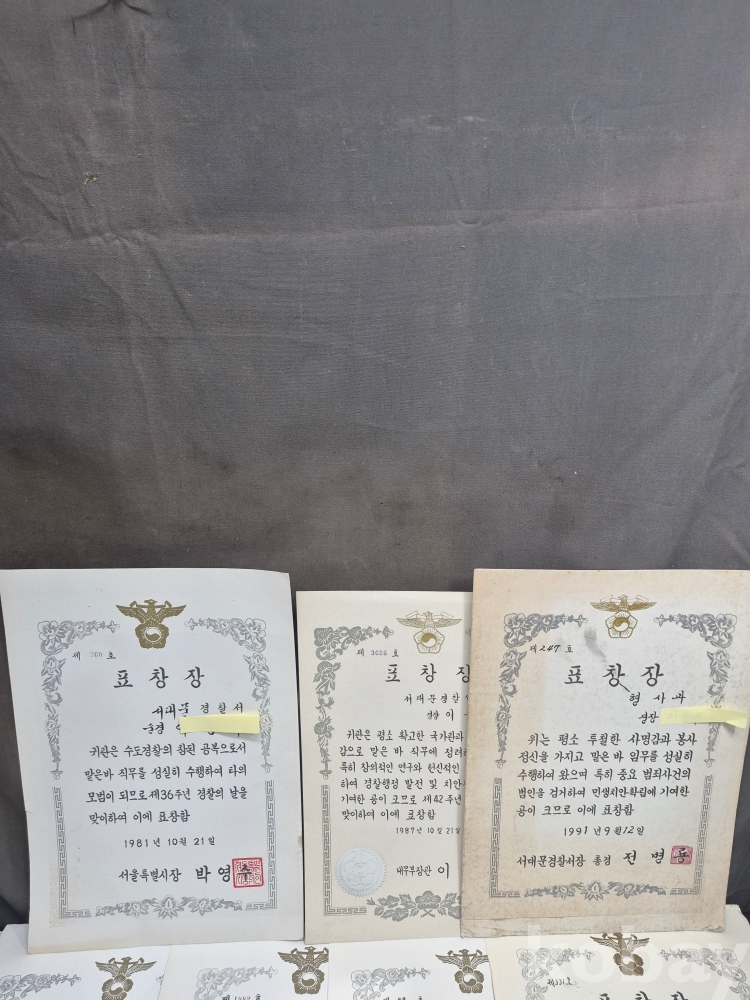 제 308 호
표창장
서대문 경찰서
순경
귀관은 수도경찰의 참된 공복으로서
맡은바 직무를 성실히 수행하여 타의
모범이 되므로 제36주년 경찰의 날을
맞이하여 이에 표창함
1981 년 10 월 21 일
서울특별시장 박영수
제 3626 호
표창장
서대문경찰서
경장 이
귀관은 평소 확고한 국가관과
감으로 맡은 바 직무에 정려하
특히 창의적인 연구와 헌신적인
하여 경찰행정 발전 및 치안
기여한 공이 크므로 제42주년
맞이하여 이에 표창함
1987년 10월 21일
내무부장관 이
제 247 호
표창장
형사과
경장
위는 평소 투철한 사명감과 봉사
정신을 가지고 맡은바 임무를 성실히
수행하여 왔으며 특히 중요 범죄사건의
범인을 검거하여 민생치안확립에 기여한
공이 크므로 이에 표창함
1991 년 9 월 12 일
서대문경찰서장 총경 전병룡
제 1582 호
표창장
kobay